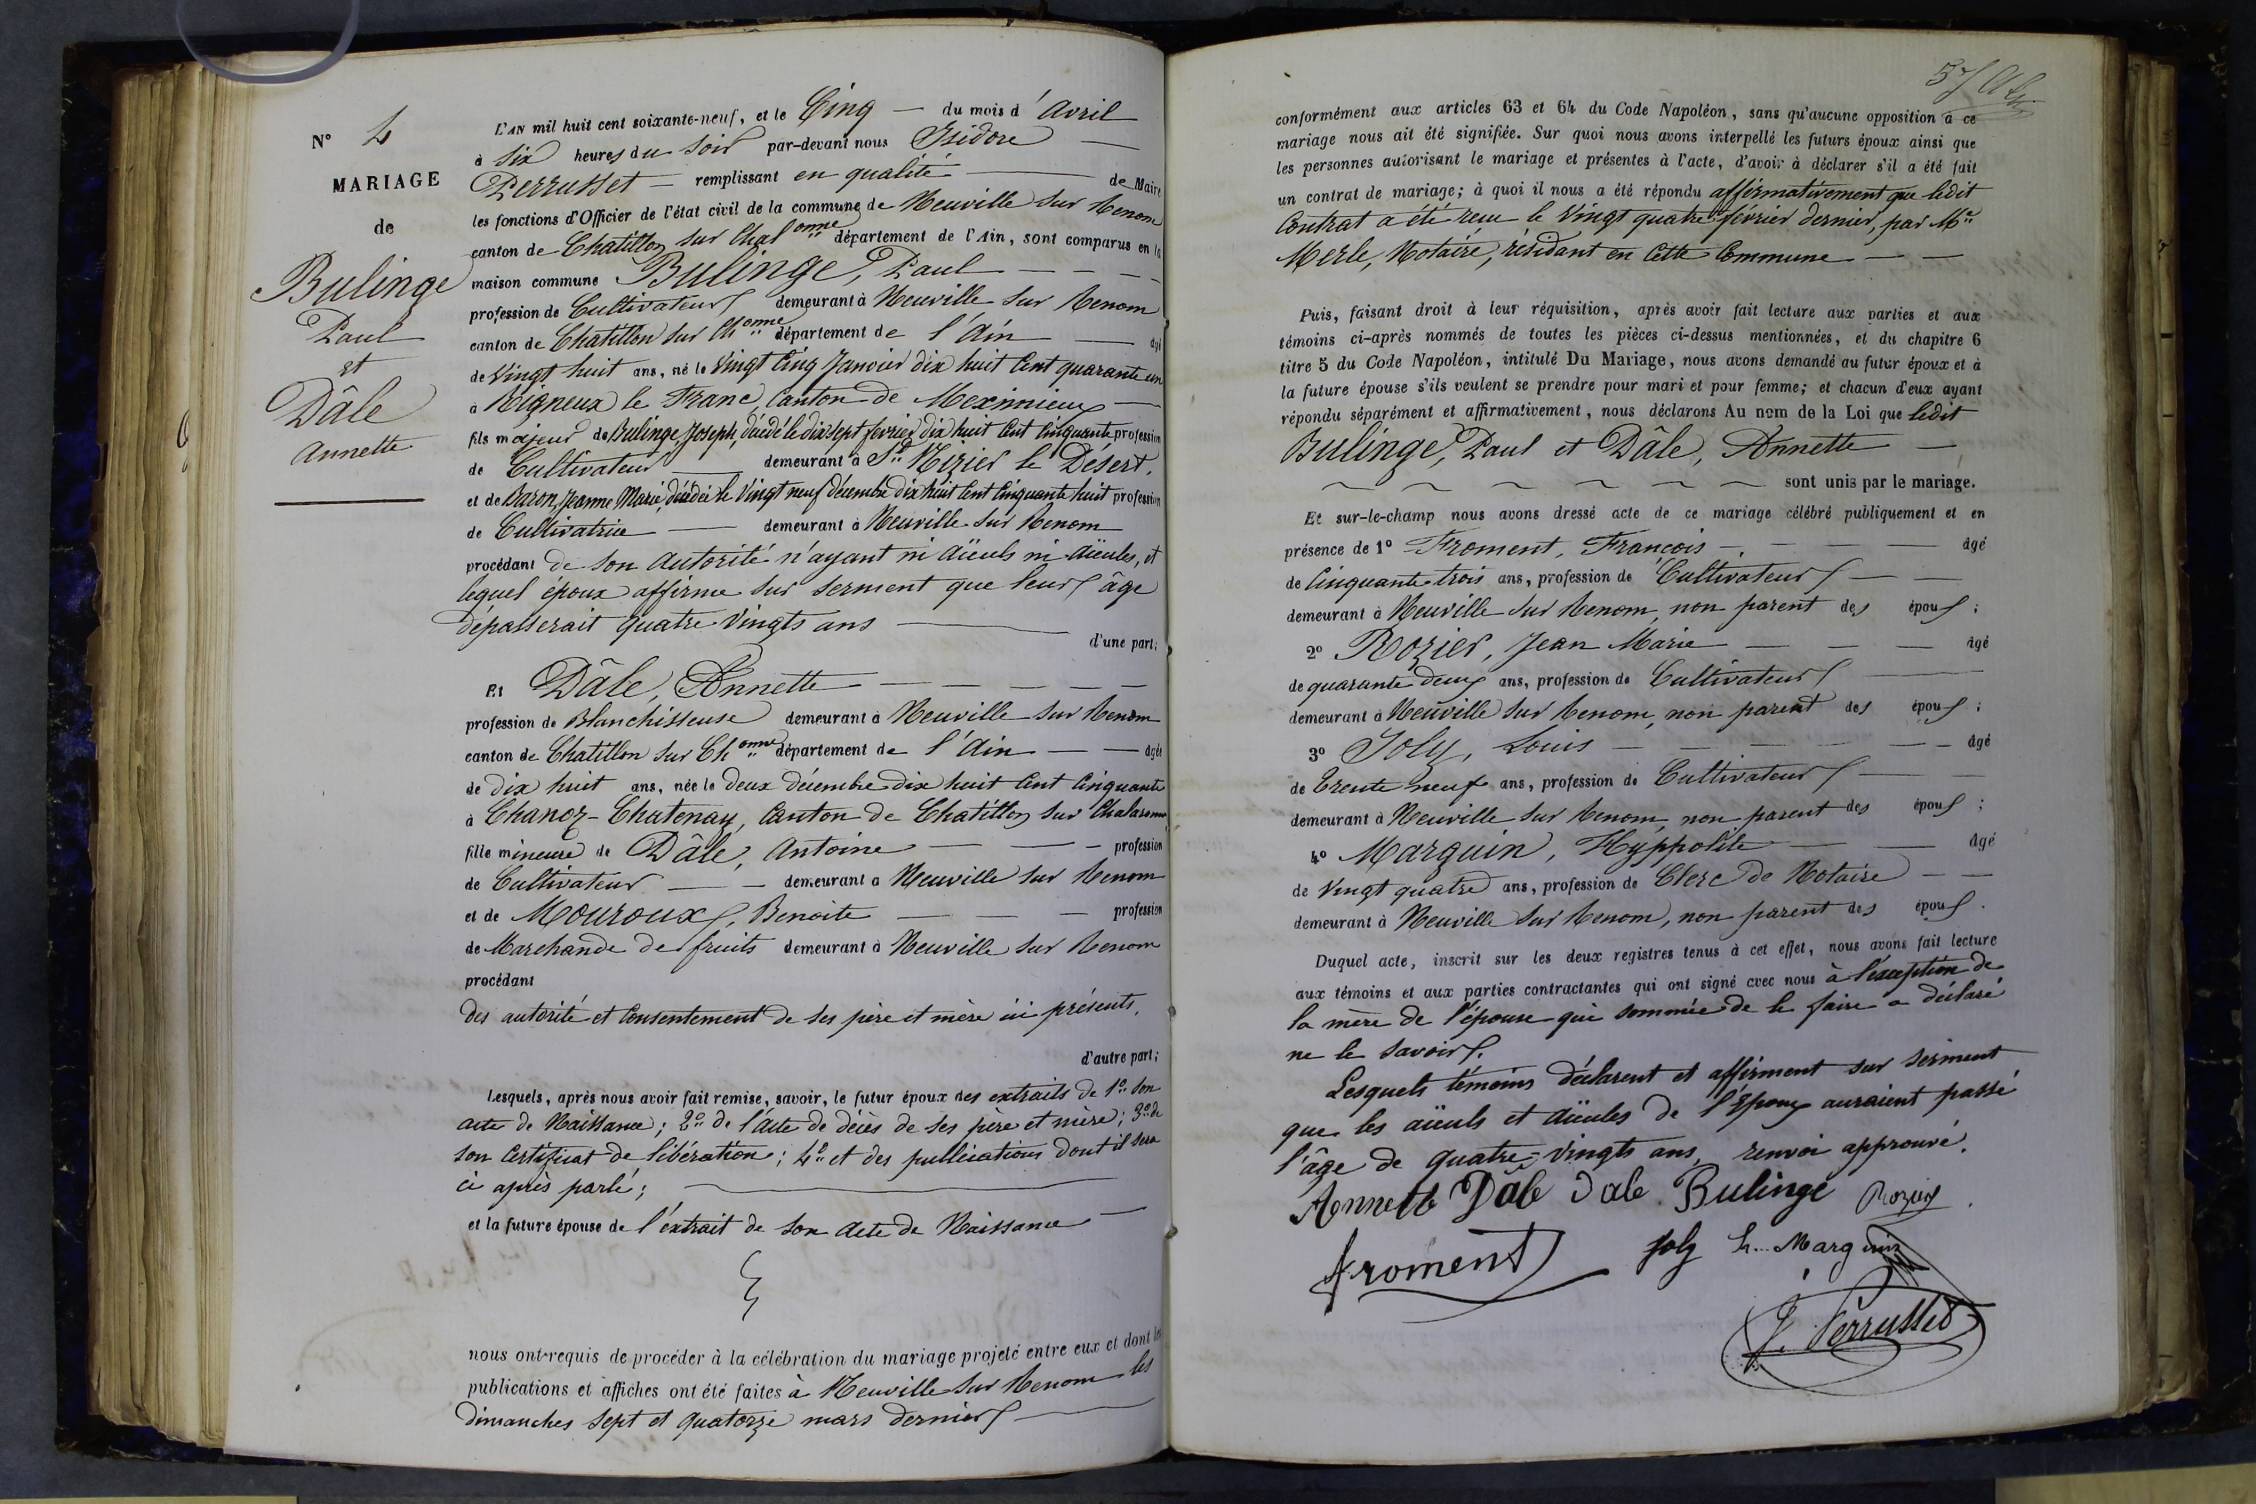 N° 4
MARIAGE
de
Bulinge
Paul
et
Dâle
Annette
L'AN mil huit cent soixante-neuf, et le Cinq — du mois d'Avril
à Six heures du Soir par-devant nous Isidore —
Perrusset — remplissant en qualité — de Maire
les fonctions d'Officier de l'état civil de la commune de Neuville sur Renom
canton de Chatillon sur Chalonne département de l'Ain, sont comparus en la
maison commune Bulinge, Paul — — —
profession de Cultivateur demeurant à Neuville sur Renom
canton de Chatillon sur Chonne département de l'Ain — âgé
de Vingt huit ans, né le Vingt Cinq Janvier dix huit Cent quarante un
à Rigneux le Franc, Canton de Meximieux —
fils majeur de Bulinge Joseph, décédé le dix sept février dix huit Cent Cinquante profession
de Cultivateur — demeurant à St Nizier le Désert,
et de Baron, Jeanne Marie, décédée le Vingt neuf décembre dix huit Cent Cinquante huit profession
de Cultivatrice — demeurant à Neuville sur Renom
procédant de son autorité n'ayant ni aïeuls ni aïeules, et
lequel époux affirme sur serment que leur âge
dépasserait quatre Vingts ans —
d'une part;
Et Dâle, Annette — — — — —
profession de Blanchisseuse demeurant à Neuville sur Renom
canton de Chatillon sur Chonne département de l'Ain — — âgée
de dix huit ans, née le deux décembre dix huit Cent Cinquante
à Chanoz-Chatenay, Canton de Chatillon sur Chalaronne
fille mineure de Dâle, Antoine — — — profession
de Cultivateur — — demeurant à Neuville sur Renom
et de Mouroux, Benoite — — — profession
de Marchande de fruits demeurant à Neuville sur Renom
procédant
des autorité et Consentement de ses père et mère ici présents.
d'autre part;
Lesquels, après nous avoir fait remise, savoir, le futur époux des extraits de 1° son
acte de Naissance; 2° de l'acte de décès de ses père et mère; 3° de
son Certificat de libération; 4° et des publications dont il sera
ci après parlé; —
et la future épouse de l'extrait de son acte de Naissance —
nous ont requis de procéder à la célébration du mariage projeté entre eux et dont les
publications et affiches ont été faites à Neuville sur Renom les
dimanches sept et quatorze mars dernier —
57
conformément aux articles 63 et 64 du Code Napoléon, sans qu'aucune opposition à ce
mariage nous ait été signifiée. Sur quoi nous avons interpellé les futurs époux ainsi que
les personnes autorisant le mariage et présentes à l'acte, d'avoir à déclarer s'il a été fait
un contrat de mariage; à quoi il nous a été répondu affirmativement que ledit
Contrat a été reçu le Vingt quatre février dernier, par Me
Merle, Notaire, résidant en Cette Commune — —
Puis, faisant droit à leur réquisition, après avoir fait lecture aux parties et aux
témoins ci-après nommés de toutes les pièces ci-dessus mentionnées, et du chapitre 6
titre 5 du Code Napoléon, intitulé Du Mariage, nous avons demandé au futur époux et à
la future épouse s'ils veulent se prendre pour mari et pour femme; et chacun d'eux ayant
répondu séparément et affirmativement, nous déclarons Au nom de la Loi que ledit
Bulinge, Paul et Dâle, Annette —
sont unis par le mariage.
Et sur-le-champ nous avons dressé acte de ce mariage célébré publiquement et en
présence de 1° Froment, François — — — — âgé
de Cinquante trois ans, profession de Cultivateur — —
demeurant à Neuville sur Renom, non parent des époux;
2° Rozier, Jean Marie — — — — âgé
de quarante deux ans, profession de Cultivateur —
demeurant à Neuville sur Renom, non parent des époux;
3° Joly, Louis — — — — — — âgé
de Trente neuf ans, profession de Cultivateur — —
demeurant à Neuville sur Renom, non parent des époux;
4° Marguin, Hyppolite — — âgé
de Vingt quatre ans, profession de Clerc de Notaire — —
demeurant à Neuville sur Renom, non parent des époux.
Duquel acte, inscrit sur les deux registres tenus à cet effet, nous avons fait lecture
aux témoins et aux parties contractantes qui ont signé avec nous à l'exception de
la mère de l'épouse qui sommée de le faire a déclaré
ne le savoir.
Lesquels témoins déclarent et affirment sur serment
que les aïeuls et aïeules de l'Epoux auraient passé
l'âge de quatre-vingts ans, renvoi approuvé.
Annette Dâle Dale Bulinge Rozier
froment Joly h... Marguin
J. Perrusset